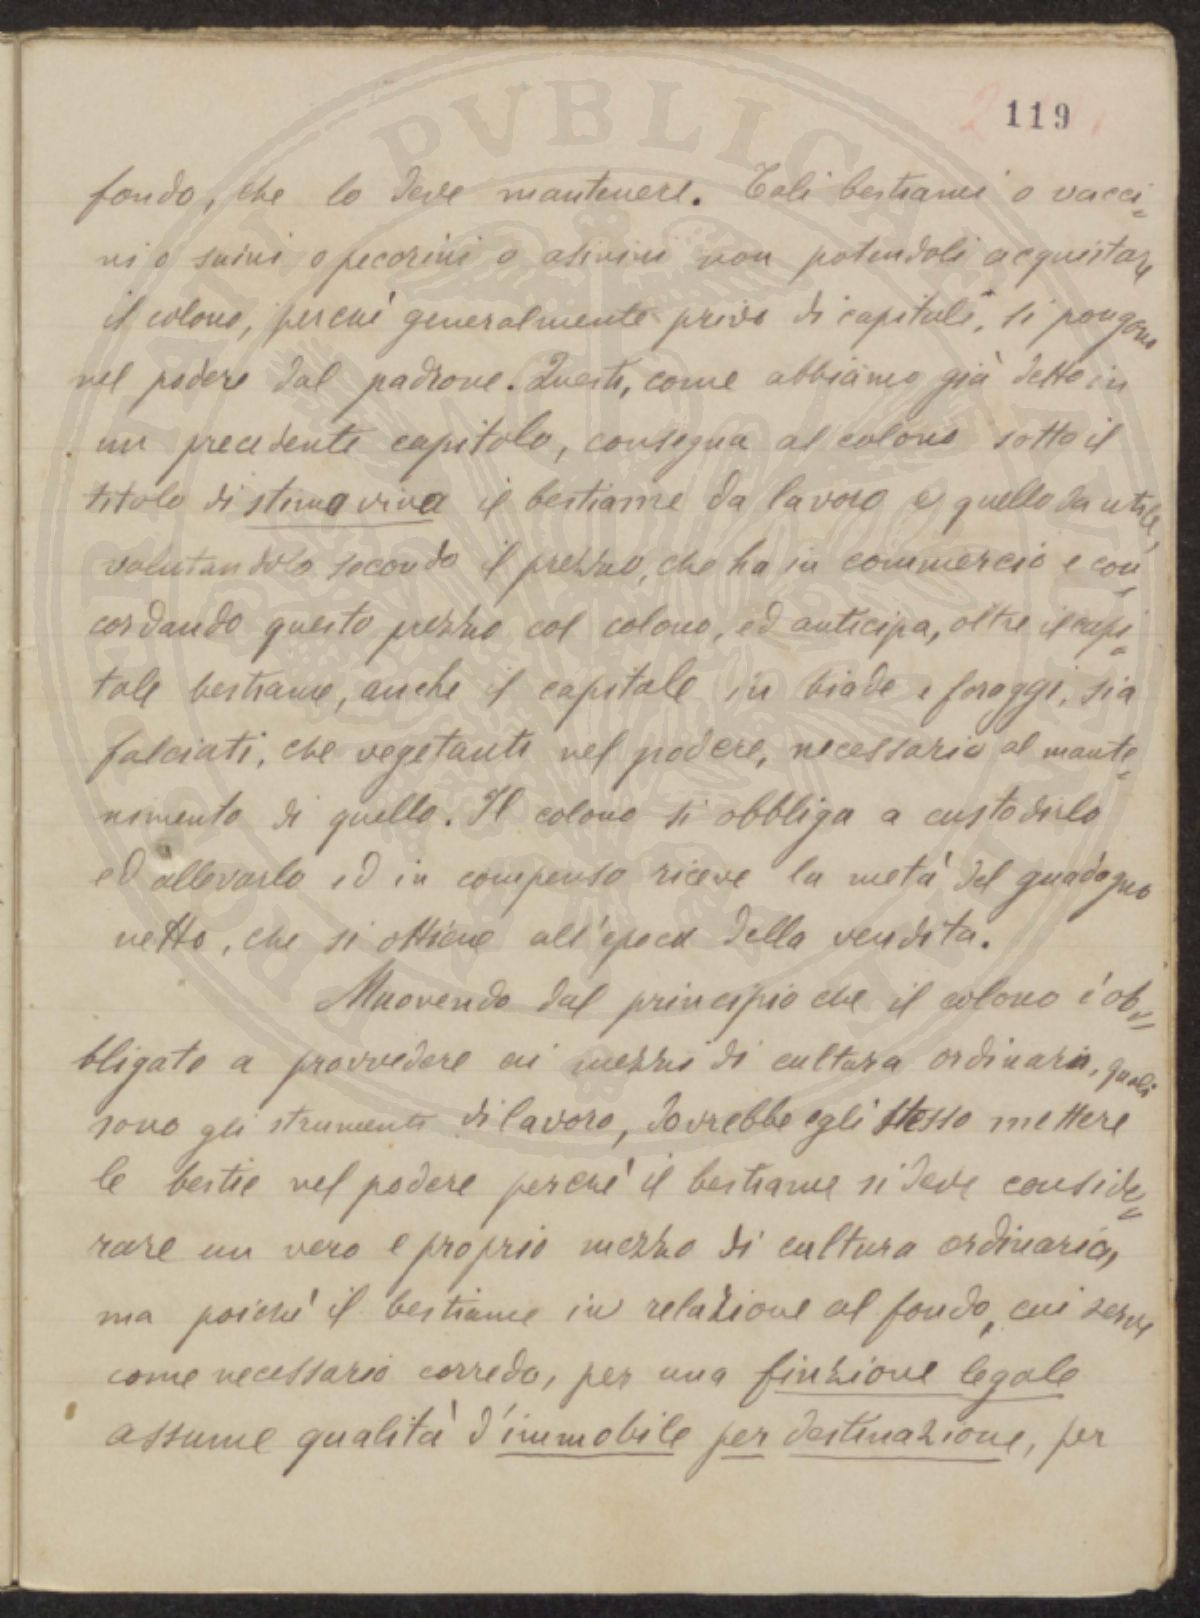 119
fondo, che lo deve mantenere. Tali bestiami o vacci=
ni o suini o pecorini o asinini non potendoli acquistare
il colono, perchè generalmente privo di capitali, si pongono
nel podere dal padrone. Questi, come abbiamo già detto in
un precedente capitolo, consegna al colono sotto il
titolo di stima viva il bestiame da lavoro e quello da utile,
valutandolo secondo il prezzo, che ha in commercio e con=
cordando questo prezzo col colono, ed anticipa, oltre il capi=
tale bestiame, anche il capitale in biade e foraggi, sia
falciati, che vegetanti nel podere, necessario al mante=
nimento di quello. Il colono si obbliga a custodirlo
ed allevarlo ed in compenso riceve la metà del guadagno
netto, che si ottiene all'epoca della vendita.
Muovendo dal principio che il colono è ob=
bligato a provvedere ai mezzi di cultura ordinaria, quali
sono gli strumenti di lavoro, dovrebbe egli stesso mettere
le bestie nel podere perchè il bestiame si deve conside=
rare un vero e proprio mezzo di cultura ordinaria,
ma poichè il bestiame in relazione al fondo, cui serve
come necessario corredo, per una finzione legale
assume qualità d'immobile per destinazione, per